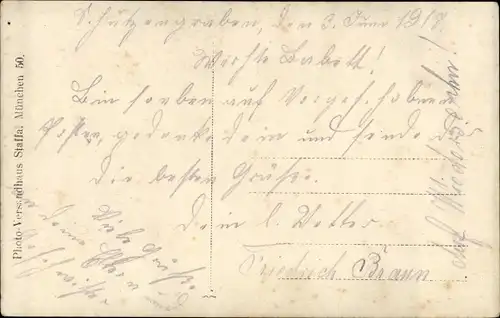 Schützengraben, den 3. Juni 1917.
Werthe Babett!
Bin soeben auf Vorgeschobenen
Posten, gedenke dein und sende dir
die besten Grüße.
Dein l. Vetter
Friedrich Braun
Auf Wiedersehen!
Viele Grüße
deine
Photo-Versandhaus Staffa, München 50.